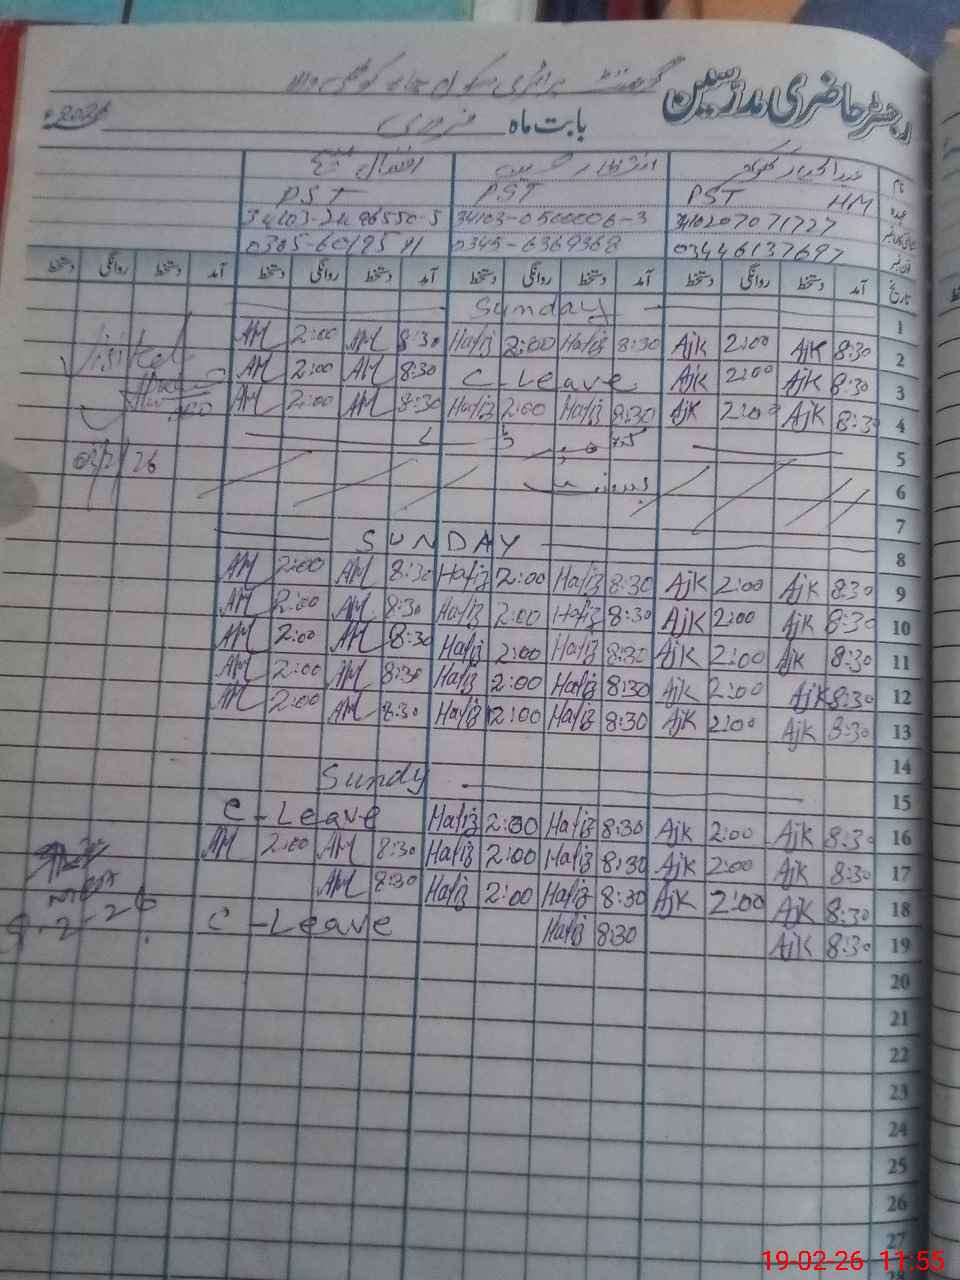 رجسٹر حاضری مدرّسین
گورنمنٹ پرائمری سکول
بابت ماہ فروری 2026ء
نام انتظار حسین
عہدہ HM PST PST PST
3410207071727 34103-0500006-3
03446137697 0345-6369368
تاریخ آمد دستخط روانگی دستخط آمد دستخط روانگی دستخط آمد دستخط روانگی دستخط آمد دستخط روانگی دستخط
1 Sunday
2 8:30 Ajk 2:00 Ajk 8:30 Hafiz 2:00 Hafiz 8:30 AM 2:00 AM Visited
3 8:30 Ajk 2:00 Ajk C-Leave 8:30 AM 2:00 AM
4 8:30 Ajk 2:00 Ajk 8:30 Hafiz 2:00 Hafiz 8:30 AM 2:00 AM
5
6
7
8 SUNDAY
9 8:30 Ajk 2:00 Ajk 8:30 Hafiz 2:00 Hafiz 8:30 AM 2:00 AM
10 8:30 Ajk 2:00 Ajk 8:30 Hafiz 2:00 Hafiz 8:30 AM 2:00 AM
11 8:30 Ajk 2:00 Ajk 8:30 Hafiz 2:00 Hafiz 8:30 AM 2:00 AM
12 8:30 Ajk 2:00 Ajk 8:30 Hafiz 2:00 Hafiz 8:30 AM 2:00 AM
13 8:30 Ajk 2:00 Ajk 8:30 Hafiz 2:00 Hafiz 8:30 AM 2:00 AM
14
15 Sundy
16 8:30 Ajk 2:00 Ajk 8:30 Hafiz 2:00 Hafiz C-Leave
17 8:30 Ajk 2:00 Ajk 8:30 Hafiz 2:00 Hafiz 8:30 AM 2:00 AM
18 8:30 Ajk 2:00 Ajk 8:30 Hafiz 2:00 Hafiz 8:30 AM
19 8:30 Ajk 8:30 Hafiz C-Leave
20
21
22
23
24
25
26
27
19-02-26 11:55